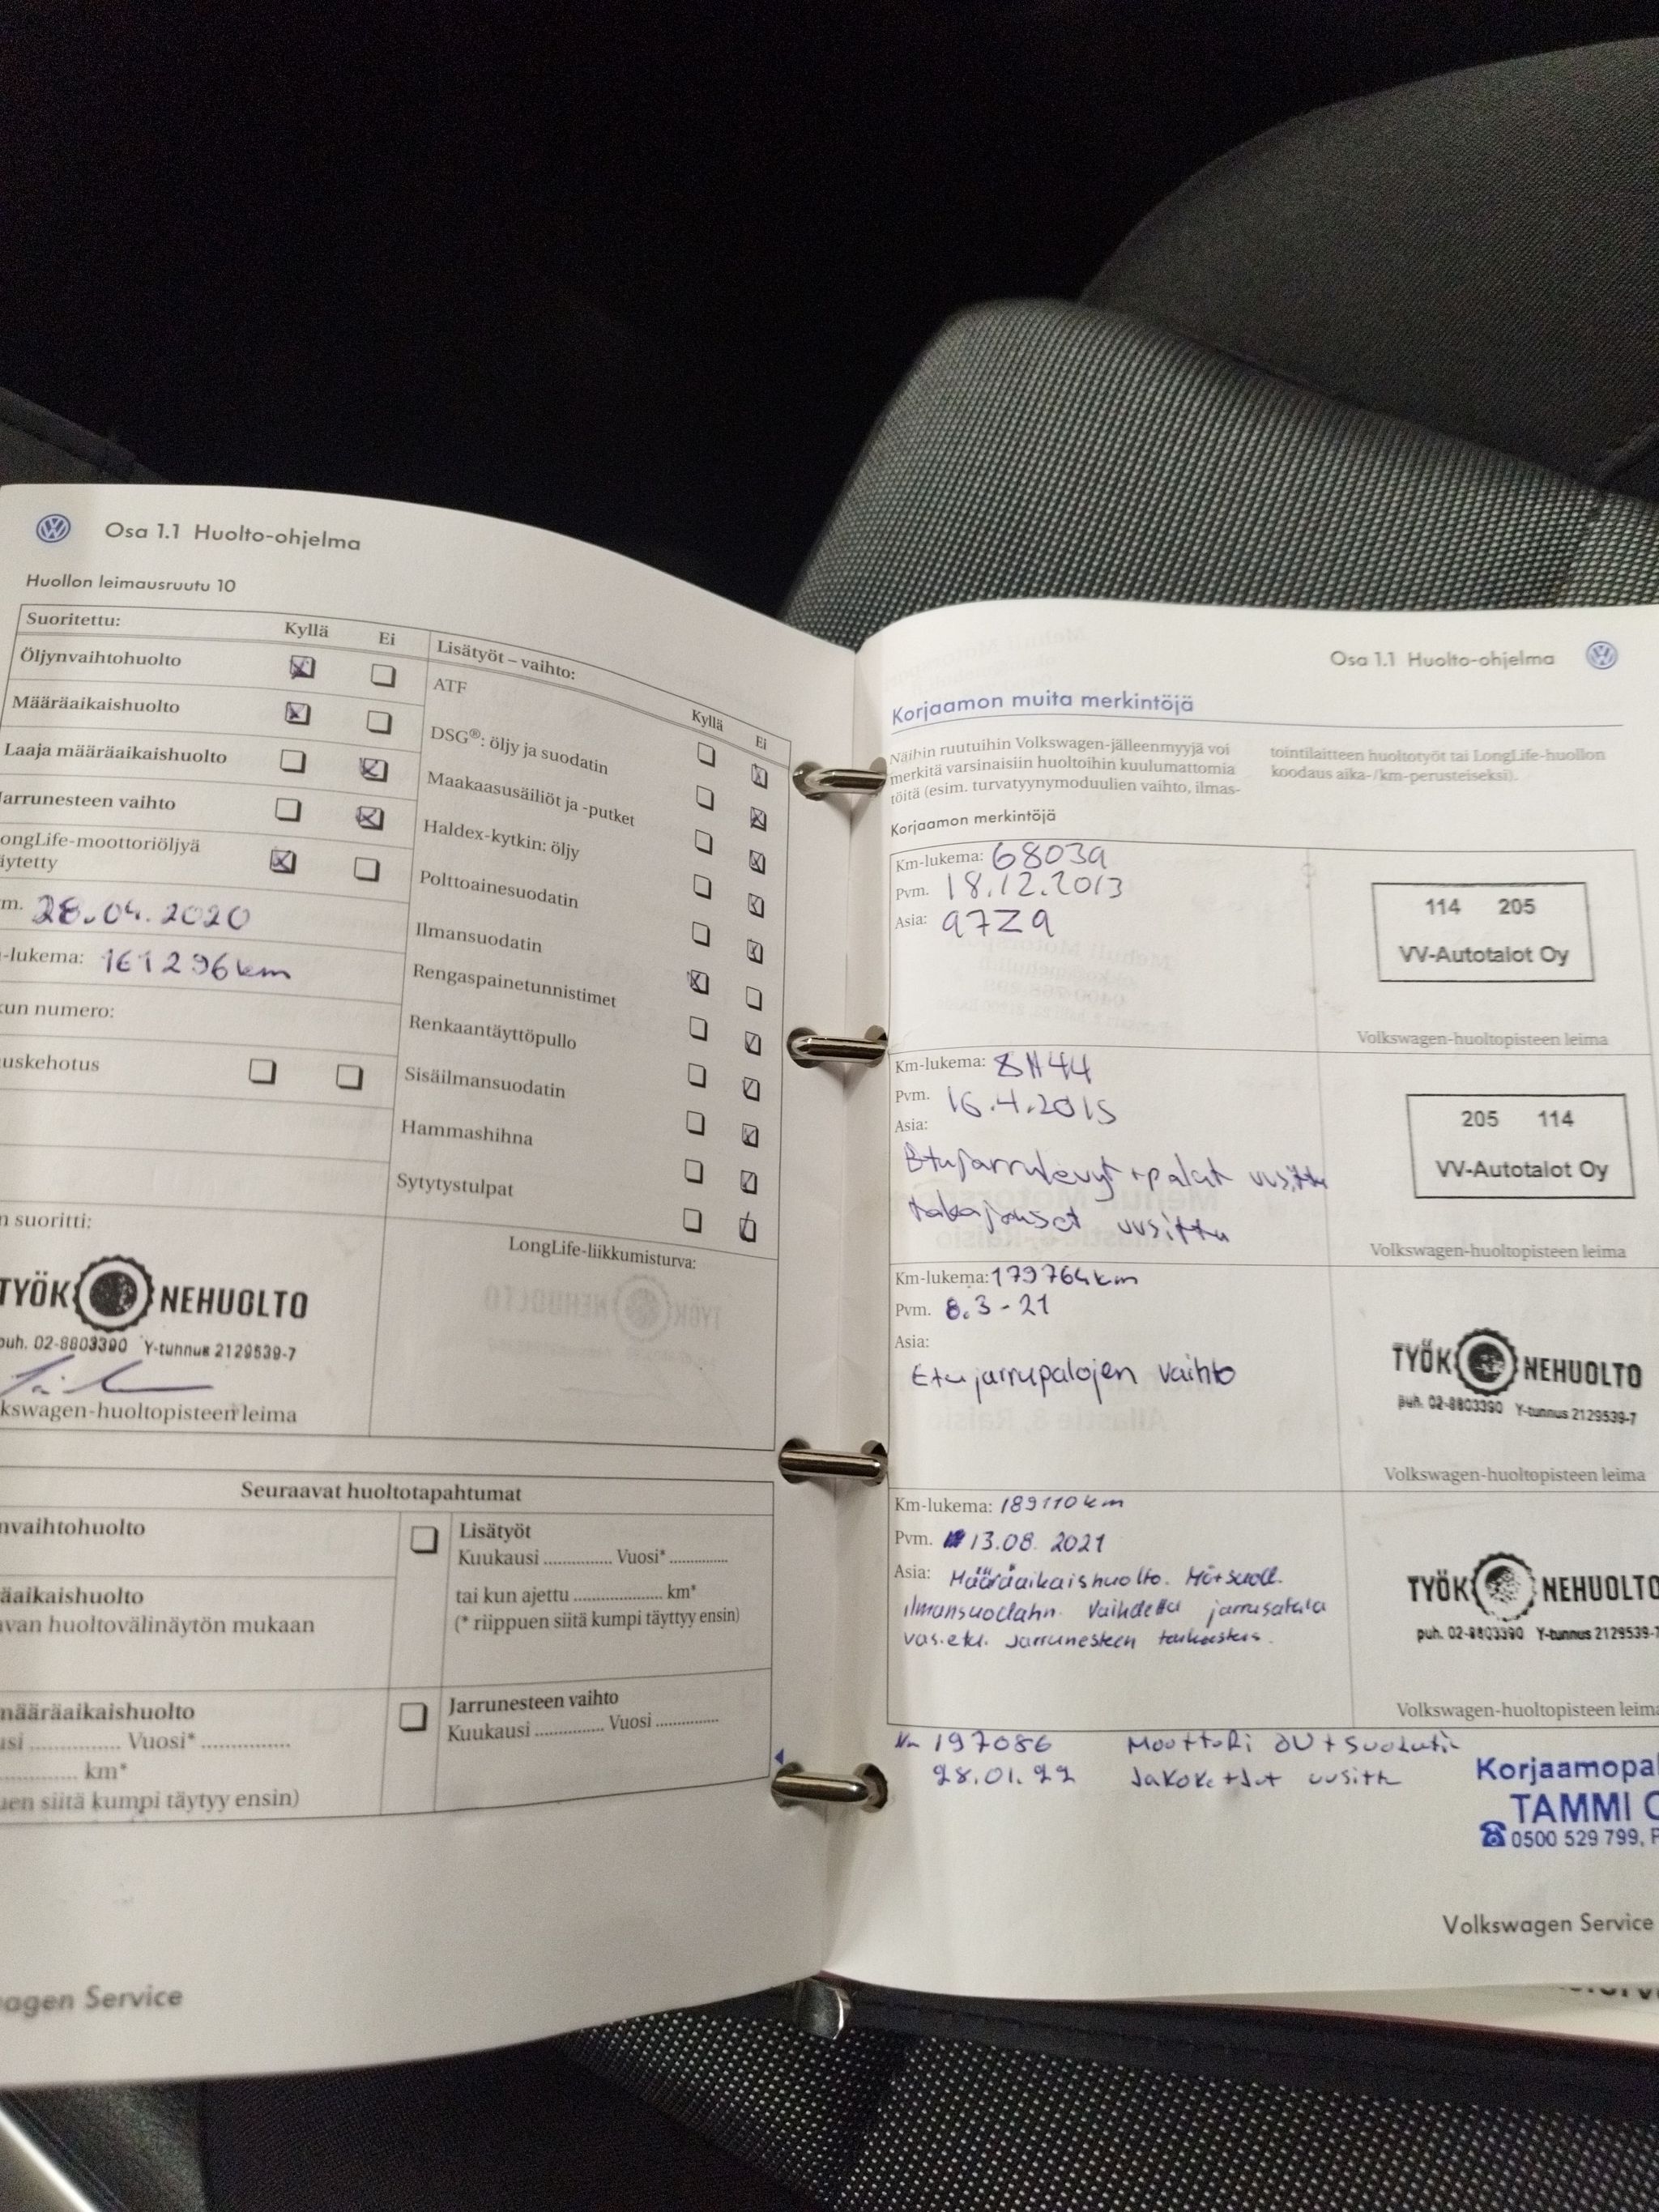 Osa 1.1 Huolto-ohjelma
Huollon leimausruutu 10
Suoritettu: Kyllä Ei
Öljynvaihtohuolto
Määräaikaishuolto
Laaja määräaikaishuolto
Jarrunesteen vaihto
ongLife-moottoriöljyä
äytetty
m. 28.04.2020
-lukema: 161296km
un numero:
uskehotus
n suoritti:
TYÖK NEHUOLTO
puh. 02-8803390 Y-tunnus 2129539-7
kswagen-huoltopisteen leima
Lisätyöt – vaihto: Kyllä Ei
ATF
DSG®: öljy ja suodatin
Maakaasusäiliöt ja -putket
Haldex-kytkin: öljy
Polttoainesuodatin
Ilmansuodatin
Rengaspainetunnistimet
Renkaantäyttöpullo
Sisäilmansuodatin
Hammashihna
Sytytystulpat
LongLife-liikkumisturva:
Seuraavat huoltotapahtumat
nvaihtohuolto
äaikaishuolto
van huoltovälinäytön mukaan
määräaikaishuolto
usi ............... Vuosi* ...............
............ km*
uen siitä kumpi täytyy ensin)
Lisätyöt
Kuukausi .............. Vuosi* ............
tai kun ajettu .................. km*
(* riippuen siitä kumpi täyttyy ensin)
Jarrunesteen vaihto
Kuukausi .............. Vuosi .............
agen Service
Osa 1.1 Huolto-ohjelma
Korjaamon muita merkintöjä
Näihin ruutuihin Volkswagen-jälleenmyyjä voi
merkitä varsinaisiin huoltoihin kuulumattomia
töitä (esim. turvatyynymoduulien vaihto, ilmas-
tointilaitteen huoltotyöt tai LongLife-huollon
koodaus aika-/km-perusteiseksi).
Korjaamon merkintöjä
Km-lukema: 68039
Pvm. 18.12.2013
Asia: 97Z9
114 205
VV-Autotalot Oy
Volkswagen-huoltopisteen leima
Km-lukema: 81144
Pvm. 16.4.2015
Asia:
Etujarrulevyt + palat uusittu
takajouset uusittu
205 114
VV-Autotalot Oy
Volkswagen-huoltopisteen leima
Km-lukema: 179764km
Pvm. 8.3-21
Asia:
Etujarrupalojen vaihto
TYÖK NEHUOLTO
puh. 02-8803390 Y-tunnus 2129539-7
Volkswagen-huoltopisteen leima
Km-lukema: 189110km
Pvm. 13.08.2021
Asia: Määräaikaishuolto.
ilmansuodatin. Vaihdettu jarrusatula
vas.etu. Jarrunesteen tarkastus.
TYÖK NEHUOLTO
puh. 02-8803390 Y-tunnus 2129539-7
Volkswagen-huoltopisteen leima
197086 Moottori ÖV + suodatin
28.01.22 Jakoketjut uusittu
Korjaamopal
TAMMI O
0500 529 799,
Volkswagen Service